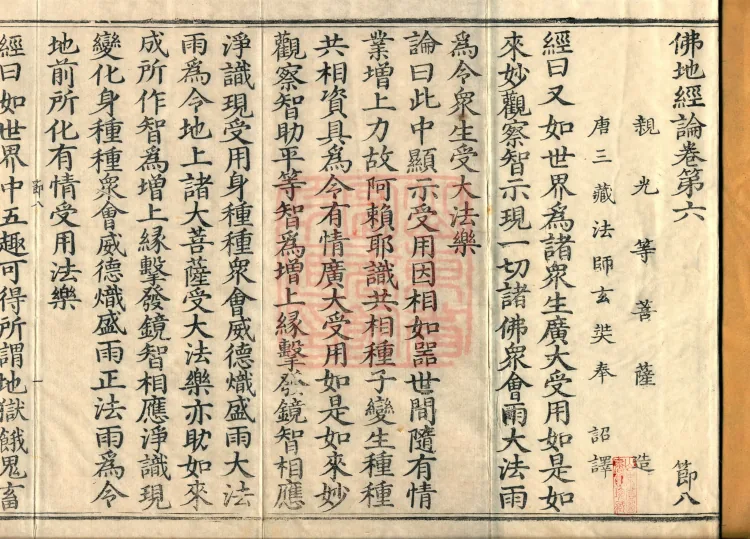 佛地經論卷第六 節八
親光等菩薩造
唐三藏法師玄奘奉 詔譯
經曰又如世界為諸衆生廣大受用如是如
來妙觀察智示現一切諸佛衆會雨大法雨
為令衆生受大法樂
論曰此中顯示受用因相如器世間隨有情
業增上力故阿賴耶識共相種子變生種種
共相資具為令有情廣大受用如是如來妙
觀察智助平等智為增上緣擊發鏡智相應
淨識現受用身種種衆會威德熾盛雨大法
雨為令地上諸大菩薩受大法樂亦助如來
成所作智為增上緣擊發鏡智相應淨識現
變化身種種衆會威德熾盛雨正法雨為令
地前所化有情受用法樂
節八 一
經曰如世界中五趣可得所謂地獄餓鬼畜